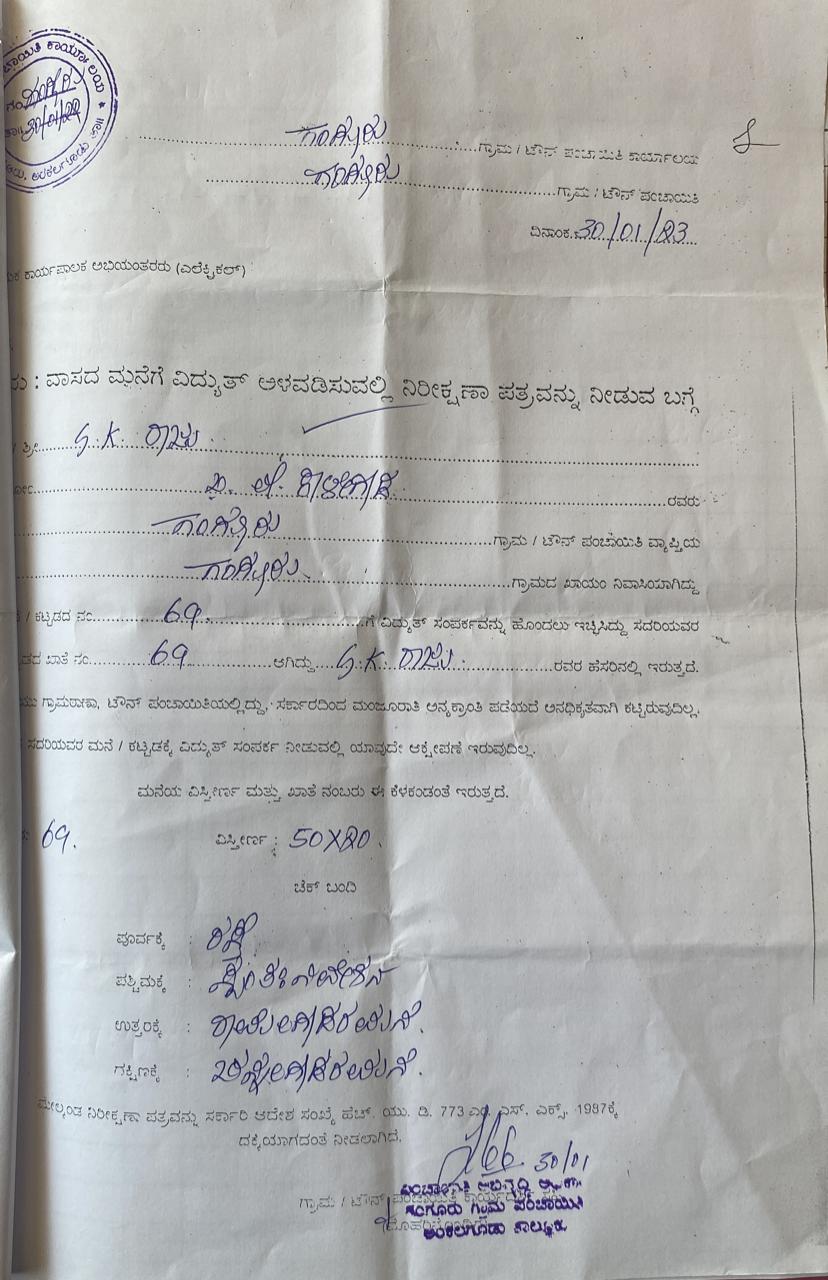 ಚಾಯಿತಿ ಕಾರ್ಯಾಲಯ ★
30/01/23
ಅರಕಲಗೂಡು
ಗಂಗೂರು ಗ್ರಾಮ / ಟೌನ್ ಪಂಚಾಯಿತಿ ಕಾರ್ಯಾಲಯ
ಗಂಗೂರು ಗ್ರಾಮ / ಟೌನ್ ಪಂಚಾಯಿತಿ
ದಿನಾಂಕ 30/01/23
ಕಾರ್ಯಪಾಲಕ ಅಭಿಯಂತರರು (ಎಲೆಕ್ಟ್ರಿಕಲ್)
: ವಾಸದ ಮನೆಗೆ ವಿದ್ಯುತ್ ಅಳವಡಿಸುವಲ್ಲಿ ನಿರೀಕ್ಷಣಾ ಪತ್ರವನ್ನು ನೀಡುವ ಬಗ್ಗೆ
ಶ್ರೀ G.K. ರಾಜು.
ರವರು
ಗಂಗೂರು ಗ್ರಾಮ / ಟೌನ್ ಪಂಚಾಯಿತಿ ವ್ಯಾಪ್ತಿಯ
ಗಂಗೂರು ಗ್ರಾಮದ ಖಾಯಂ ನಿವಾಸಿಯಾಗಿದ್ದು
/ ಕಟ್ಟಡದ ನಂ. 69. ಗೆ ವಿದ್ಯುತ್ ಸಂಪರ್ಕವನ್ನು ಹೊಂದಲು ಇಚ್ಛಿಸಿದ್ದು ಸದರಿಯವರ
ಖಾತೆ ನಂ. 69 ಆಗಿದ್ದು G.K. ರಾಜು. ರವರ ಹೆಸರಿನಲ್ಲಿ ಇರುತ್ತದೆ.
ಗ್ರಾಮಠಾಣಾ, ಟೌನ್ ಪಂಚಾಯಿತಿಯಲ್ಲಿದ್ದು, ಸರ್ಕಾರದಿಂದ ಮಂಜೂರಾತಿ ಅನ್ಯಕ್ರಾಂತಿ ಪಡೆಯದೆ ಅನಧಿಕೃತವಾಗಿ ಕಟ್ಟಿರುವುದಿಲ್ಲ.
ಸದರಿಯವರ ಮನೆ / ಕಟ್ಟಡಕ್ಕೆ ವಿದ್ಯುತ್ ಸಂಪರ್ಕ ನೀಡುವಲ್ಲಿ ಯಾವುದೇ ಆಕ್ಷೇಪಣೆ ಇರುವುದಿಲ್ಲ.
ಮನೆಯ ವಿಸ್ತೀರ್ಣ ಮತ್ತು ಖಾತೆ ನಂಬರು ಈ ಕೆಳಕಂಡಂತೆ ಇರುತ್ತದೆ.
69. ವಿಸ್ತೀರ್ಣ : 50X80.
ಚೆಕ್ ಬಂದಿ
ಪೂರ್ವಕ್ಕೆ : ರಸ್ತೆ
ಪಶ್ಚಿಮಕ್ಕೆ : ಸ್ವಂತ ನಿವೇಶನ
ಉತ್ತರಕ್ಕೆ : ರಾಮೇಗೌಡರ ಮನೆ.
ಗಕ್ಷಿಣಕ್ಕೆ :
ಮೇಲ್ಕಂಡ ನಿರೀಕ್ಷಣಾ ಪತ್ರವನ್ನು ಸರ್ಕಾರಿ ಆದೇಶ ಸಂಖ್ಯೆ ಹೆಚ್. ಯು. ಡಿ. 773 ಎಂ. ಎಸ್. ಎಕ್ಸ್. 1987ಕ್ಕೆ
ದಕ್ಕೆಯಾಗದಂತೆ ನೀಡಲಾಗಿದೆ.
30/01
ಗ್ರಾಮ / ಟೌನ್ ಪಂಚಾಯಿತಿ
ಪಂಚಾಯಿತಿ ಅಭಿವೃದ್ಧಿ
ಗಂಗೂರು ಗ್ರಾಮ ಪಂಚಾಯಿತಿ
ಅರಕಲಗೂಡು ತಾಲ್ಲೂಕು